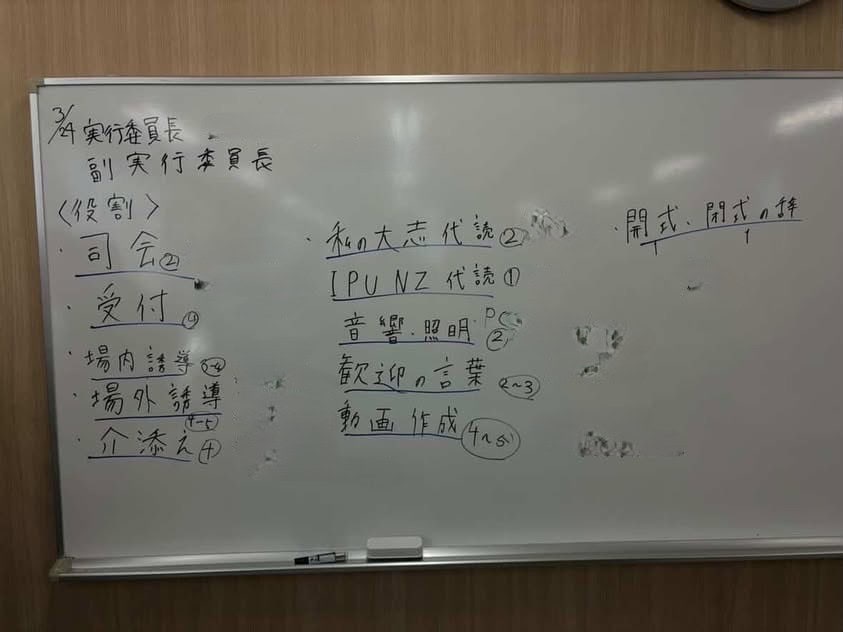 3/24 実行委員長
副実行委員長
〈役割〉
・司会②
・受付
・場内誘導
・場外誘導 4-5
・介添え④
・私の大志代読②
IPU NZ 代読①
音響・照明 PC ②
歓迎の言葉 2～3
動画作成
・開式、閉式の辞
1 1